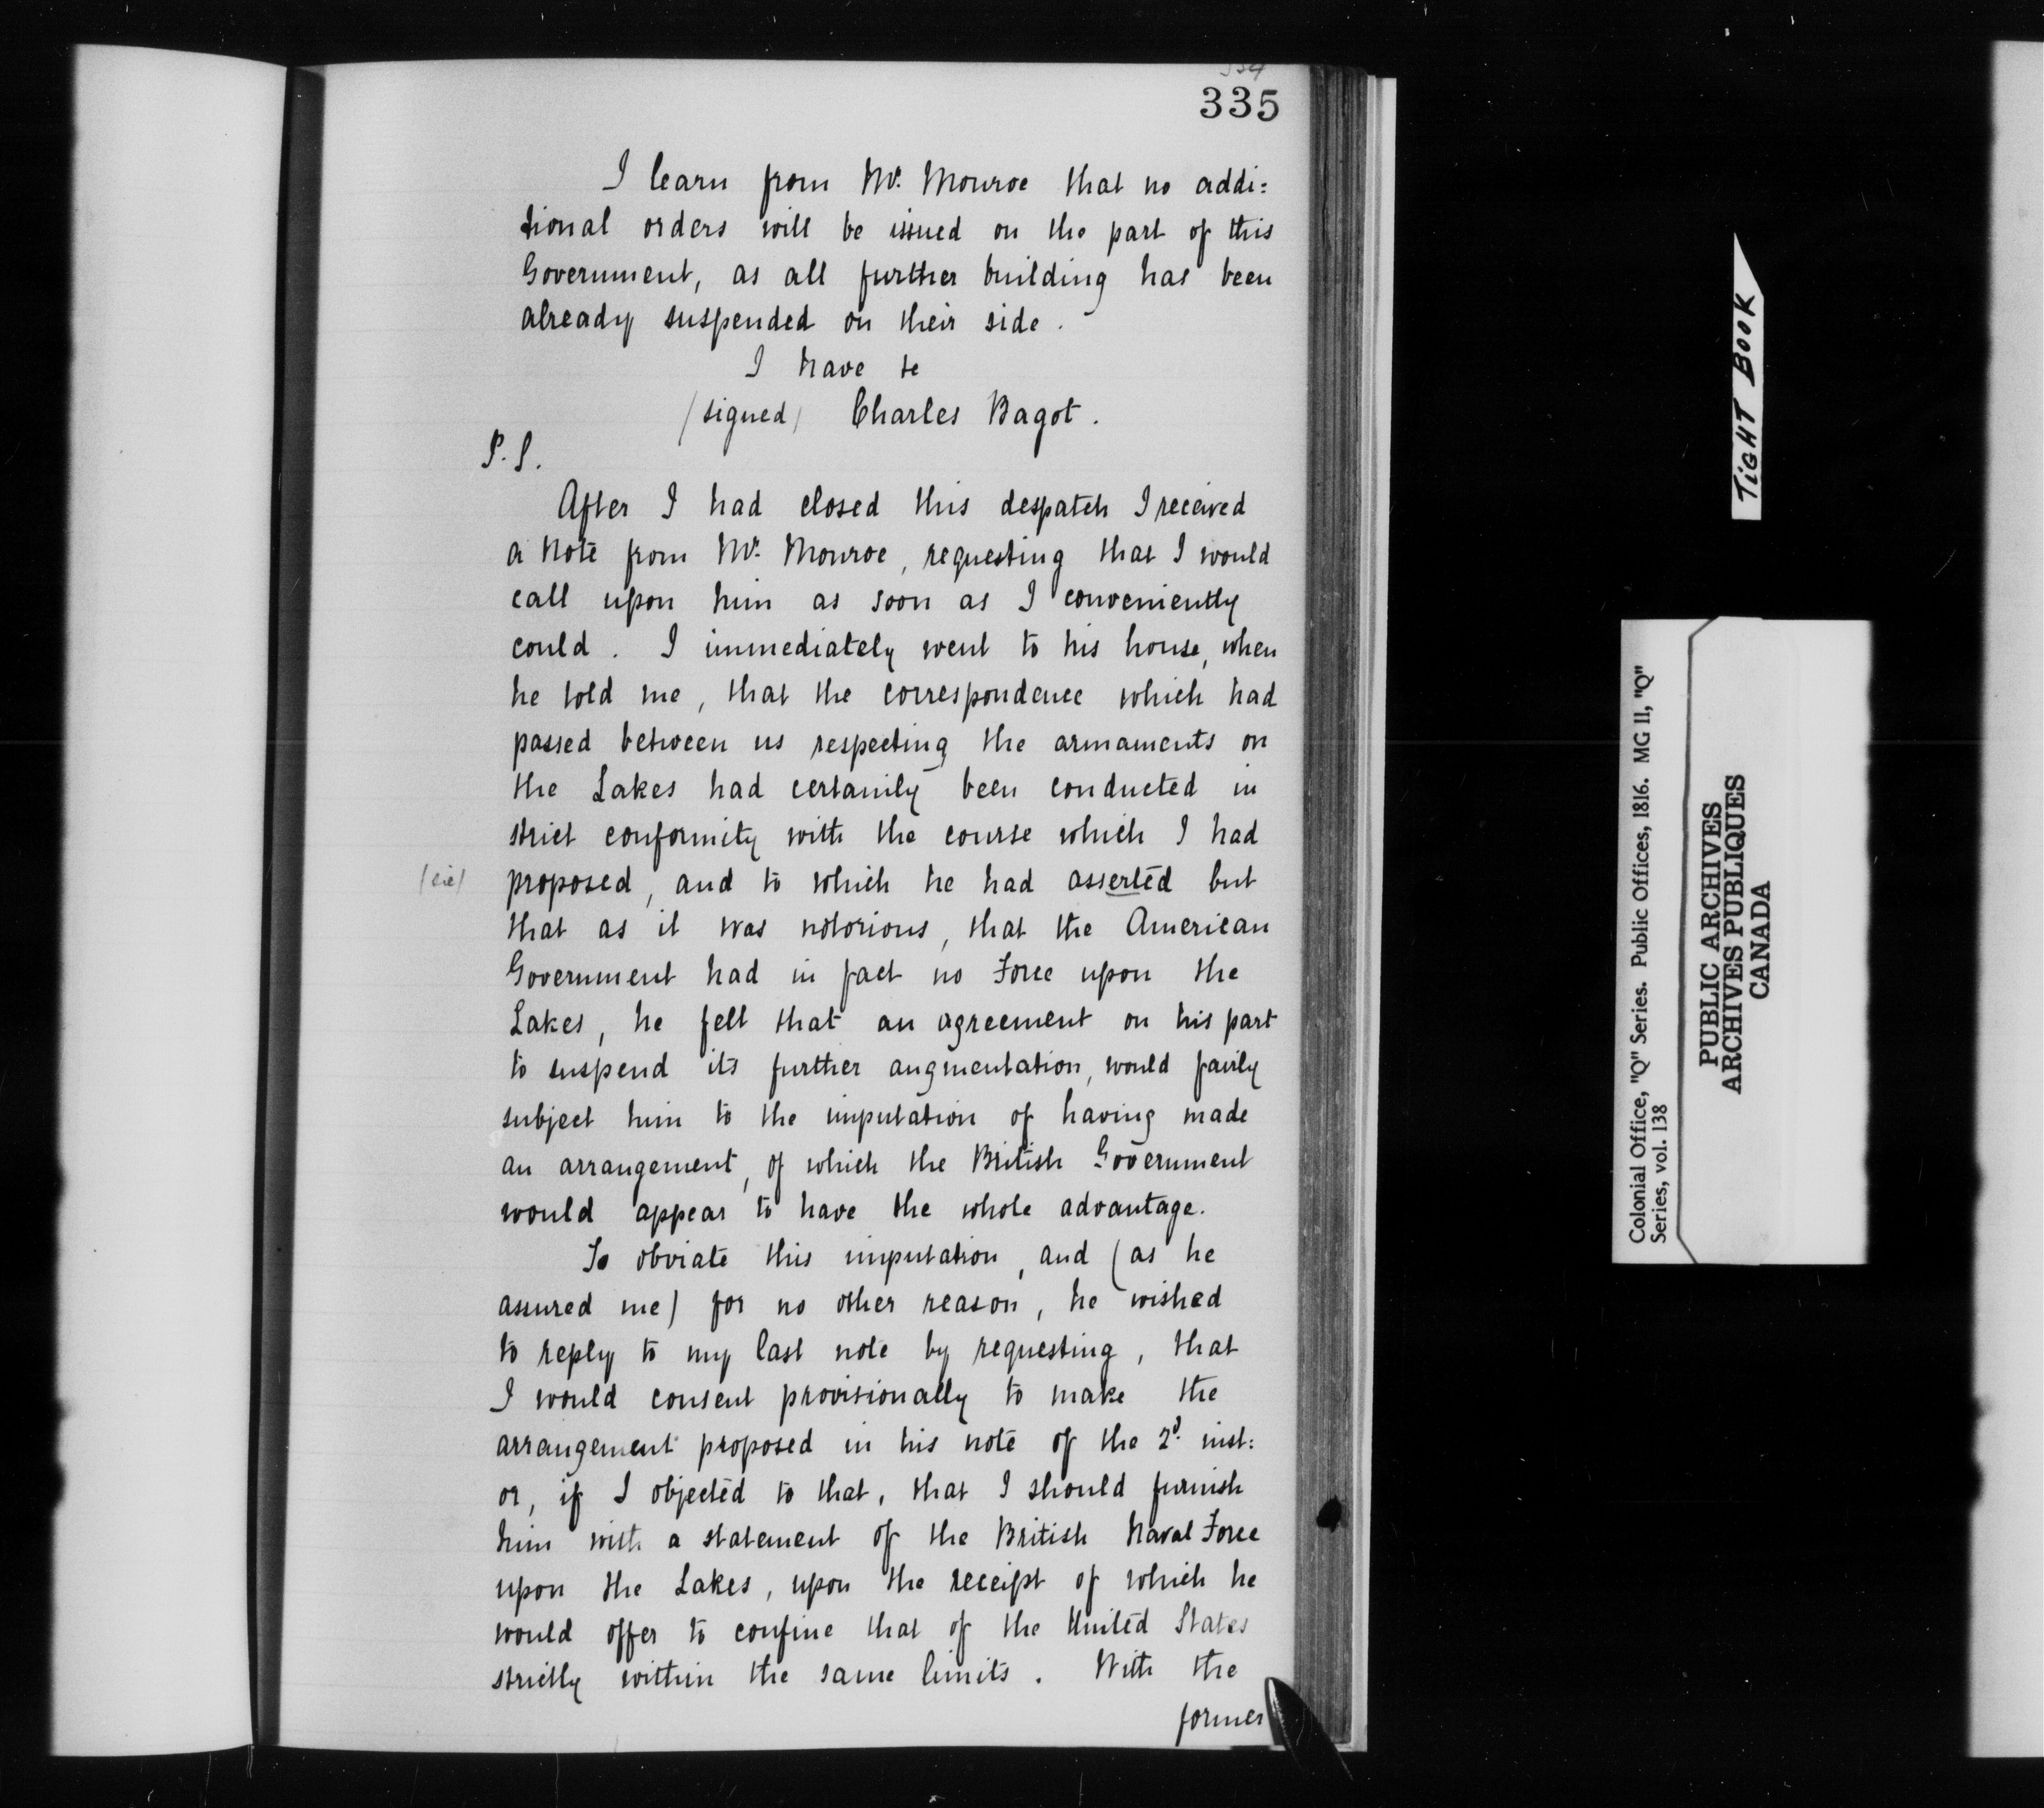 335
I learn from Mr. Monroe that no addi:
tional orders will be issued on the part of this
Government, as all further building has been
already suspended on their side.
I have &c
(signed) Charles Bagot.
P.S.
After I had closed this despatch I received
a Note from Mr. Monroe, requesting that I would
call upon him as soon as I conveniently
could. I immediately went to his house, when
he told me, that the correspondence which had
passed between us respecting the armaments on
the Lakes had certainly been conducted in
strict conformity with the course which I had
(sic) proposed, and to which he had asserted but
that as it was notorious, that the American
Government had in fact no Force upon the
Lakes, he felt that an agreement on his part
to suspend its further augmentation, would fairly
subject him to the imputation of having made
an arrangement, of which the British Government
would appear to have the whole advantage.
To obviate this imputation, and (as he
assured me) for no other reason, he wished
to reply to my last note by requesting, that
I would consent provisionally to make the
arrangement proposed in his note of the 2d. inst:
or, if I objected to that, that I should furnish
him with a statement of the British Naval Force
upon the Lakes, upon the receipt of which he
would offer to confine that of the United States
strictly within the same limits. With the
former
TIGHT BOOK
Colonial Office, "Q" Series. Public Offices, 1816. MG 11, "Q"
Series, vol. 138
PUBLIC ARCHIVES
ARCHIVES PUBLIQUES
CANADA